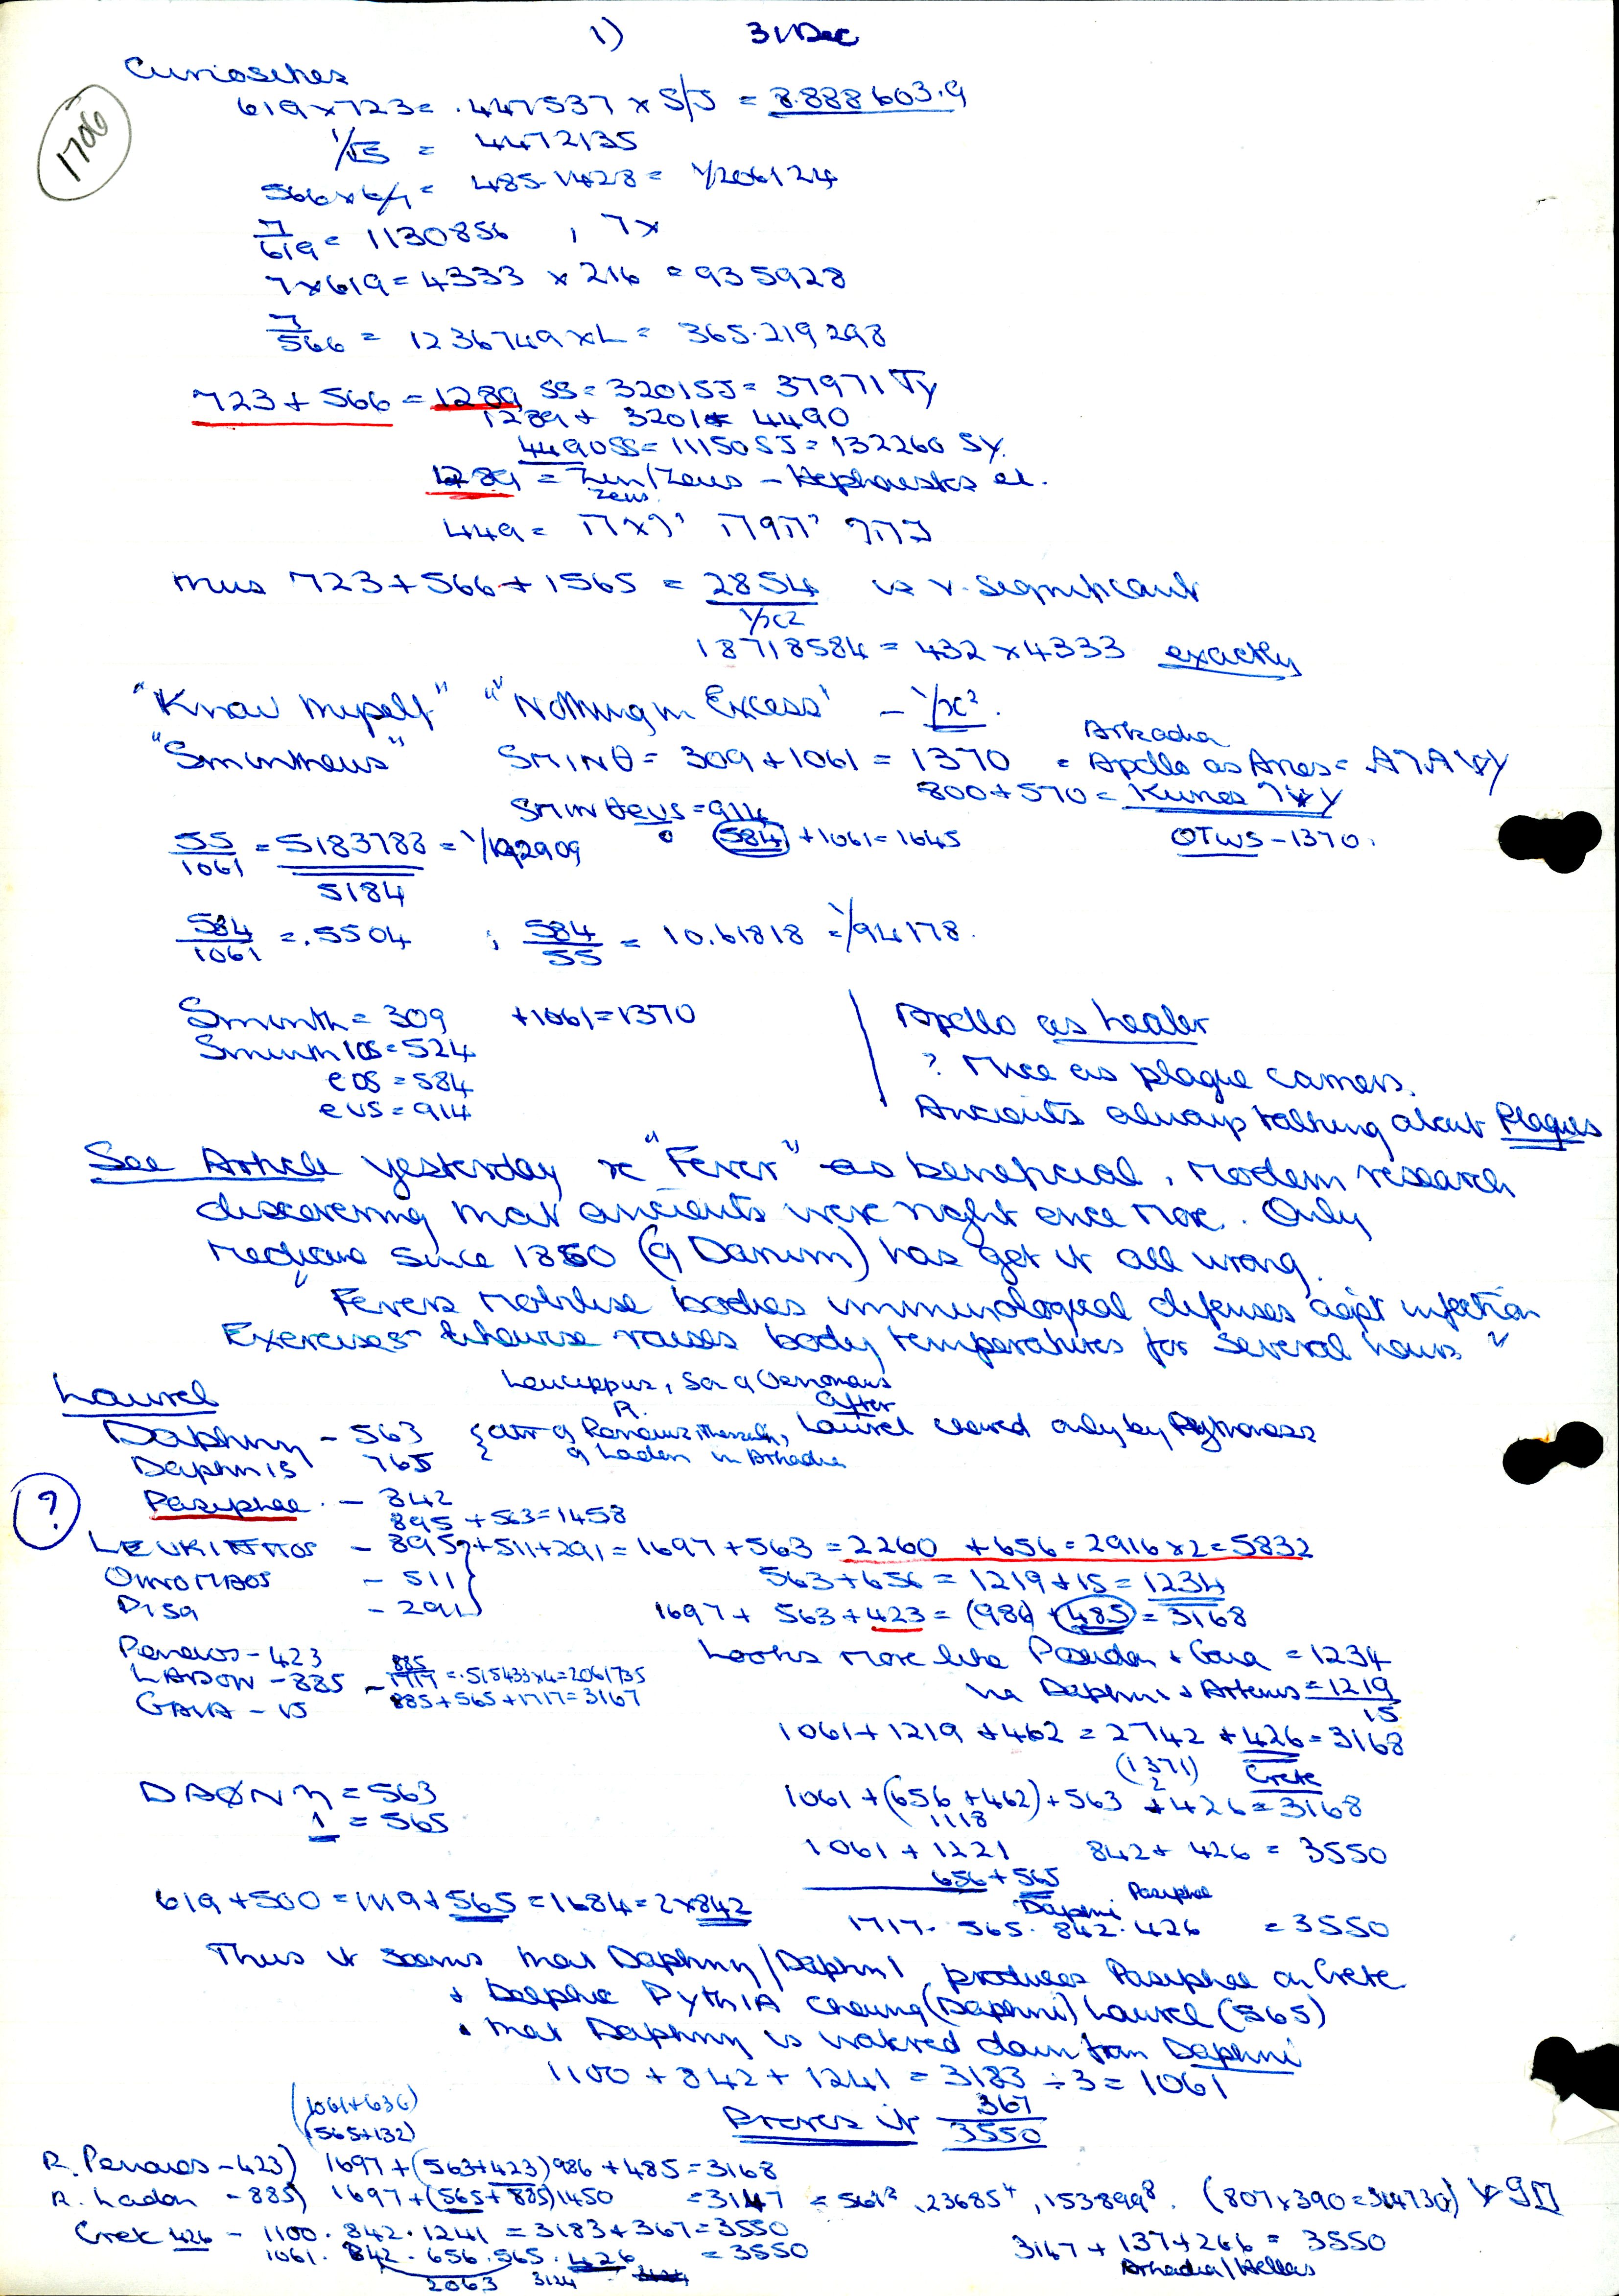 1) 31 Dec
1706
Curiosities
619 x 723 = .447537 x S/J = 8.888603.9
1/√5 = 4472135
566 x 6/7 = 485.1428 = 1/206124
7/619 = 1130856 , 7x
7 x 619 = 4333 x 216 = 935928
7/566 = 1236749 x L = 365.219298
723 + 566 = 1289 SS = 3201 SJ = 37971 Ty
1289 + 3201 = 4490
4490 SS = 11150 SJ = 132260 SY.
1289 = Zen/Zeus - Hephaestos el.
Zeus
449 =
Thus 723 + 566 + 1565 = 2854 is v. significant
1/x2
18718584 = 432 x 4333 exactly
"Know Thyself" "Nothing in Excess" - 1/x2.
"Smintheus" SMINθ = 309 + 1061 = 1370 = Apollo as Ares =
Arkadia
800 + 570 = Kunes
SMINθeus = 914
55/1061 = 5183788 = 1/192909 584 + 1061 = 1645 OTWS - 1370.
5184
584/1061 = .5504 ; 584/55 = 10.61818 = 1/94178.
Sminth = 309 + 1061 = 1370
Sminthios = 524
eos = 584
eus = 914
Apollo as healer
? Mice as plague carriers.
Ancients always talking about Plagues
See Article yesterday re "Fever" as beneficial, Modern research
discovering that ancients were right once more. Only
Medicine since 1850 (q Darwin) has got it all wrong.
"Fevers mobilise bodies immunological defenses agst infection
Exercises likewise raises body temperatures for several hours"
Laurel
Leucippus, Son of Oenomaus
Daphny - 563 {dtr of R. Peneus, Laurel chewed only by Pythoness
after
Daphnis 765 { of Ladon in Arkadia
Pasiphae - 842
895 + 563 = 1458
?
LEUKIPPOS - 895 } + 511 + 291 = 1697 + 563 = 2260 + 656 = 2916 x 2 = 5832
OINOMAOS - 511 } 563 + 656 = 1219 + 15 = 1234
PISA - 291 } 1697 + 563 + 423 = (986) + 485 = 3168
Peneios - 423 Looks more like Poseidon + Gaia = 1234
LADON - 885 - 885/1717 = .515433 x 4 = 2061735
885 + 565 + 1717 = 3167
via Daphni + Artemis = 1219
GAIA - 15 15
1061 + 1219 + 462 = 2742 + 426 = 3168
(1371) Crete
2
DAΦNη = 563 1061 + (656 + 462) + 563 + 426 = 3168
1118
1 = 565
1061 + 1221 842 + 426 = 3550
656 + 565
619 + 500 = 1119 + 565 = 1684 = 2 x 842
Daphni Pasiphae
1717. 565. 842. 426 = 3550
Thus it seems that Daphny/Daphni produces Pasiphae on Crete
+ Delphic PythIA chewing (Daphni) Laurel (565)
. that Daphny is watered down from Daphni
1100 + 842 + 1241 = 3183 ÷ 3 = 1061
Proves it 367
3550
(1061 + 636)
(565 + 132)
R. Peneios - 423) 1697 + (563 + 423) 986 + 485 = 3168
R. Ladon - 885) 1697 + (565 + 885) 1450 = 3147 = 561², 23685⁴, 153899⁸. (807 x 390 = 314730)
Crete 426 - 1100. 842. 1241 = 3183 + 367 = 3550
3147 + 137 + 266 = 3550
1061. 842. 656. 565. 426 = 3550
Arkadia/Hellas
2063 3124